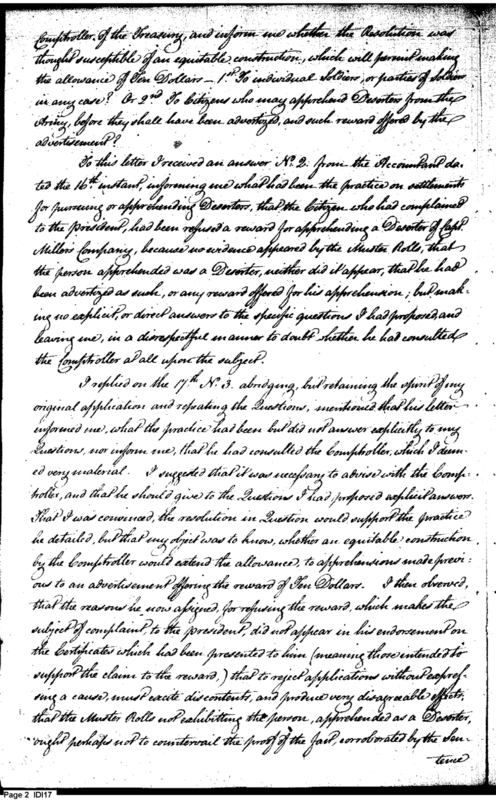 Comptroller, of the Treasury, and inform me whether the Resolution was
thought susceptible of an equitable construction, which will permit making
the allowance of Ten Dollars — 1st To individual Soldiers, or parties of Soldiers
in any case? Or 2nd To Citizens who may apprehend Deserters from the
Army, before they shall have been advertized, and such reward offered by the
advertisement?
To this letter I received an answer No. 2. from the Accountant da-
ted the 16th instant, informing me what had been the practice on settlements
for pursuing or apprehending Deserters, that the Citizen who had complained
to the president, had been refused a reward for apprehending a Deserter of Capt.
Millers Company, because no evidence appeared by the Muster Rolls, that
the person apprehended was a Deserter, neither did it appear, that he had
been advertized as such, or any reward offered for his apprehension, but mak-
ing no explicit, or direct answers to the specific questions I had proposed, and
leaving me, in a disrespectful manner to doubt whether he had consulted
the Comptroller at all upon the subject.
I replied on the 17th No. 3. abridging, but retaining the spirit of my
original application and repeating the Questions, mentioned that his letter
informed me, what the practice had been but did not answer explicitly to my
Questions, nor inform me, that he had consulted the Comptroller, which I deem-
ed very material. I suggested that it was necessary to advise with the Comp-
troller, and that he should give to the Questions I had proposed explicit answers.
That I was convinced, the resolution in Question would support the practice
he detailed, but that my object was to know, whether an equitable construction
by the Comptroller would extend the allowance, to apprehensions made previ-
ous to an advertisement offering the reward of Ten Dollars. I then observed,
that the reasons he now assigned, for refusing the reward, which makes the
subject of complaint, to the president, did not appear in his endorsement on
the Certificates which had been presented to him (meaning those intended to
support the claim to the reward,) that to reject applications without expres-
sing a cause, must excite discontents, and produce very disagreeable effects,
that the Muster Rolls not exhibitting the person, apprehended as a Deserter,
ought perhaps not to countervail the proof of the fact, corroborated by the Sen-
tence
Page 2 IDI17